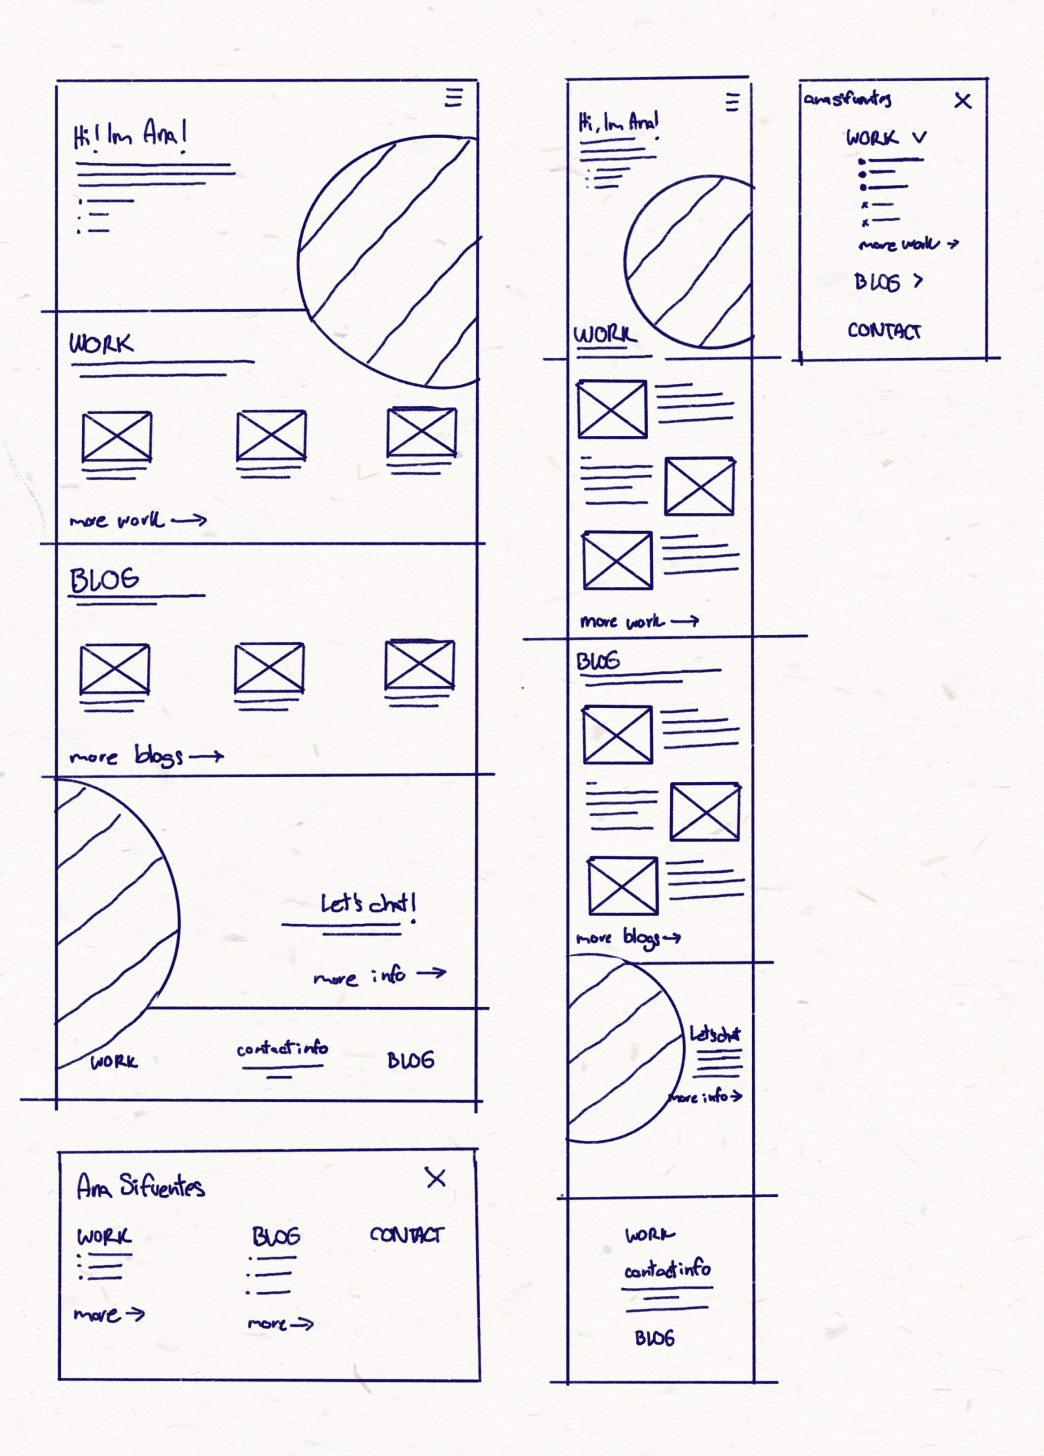 Hi! Im Ana!
WORK
more work →
BLOG
more blogs →
Let's chat!
more info →
WORK
contact info
BLOG
Ana Sifuentes
WORK
BLOG
CONTACT
more →
more →
Hi, Im Ana!
WORK
more work →
BLOG
more blogs →
Let's chat
more info →
WORK
contact info
BLOG
ana sifuentes
WORK
more work →
BLOG >
CONTACT